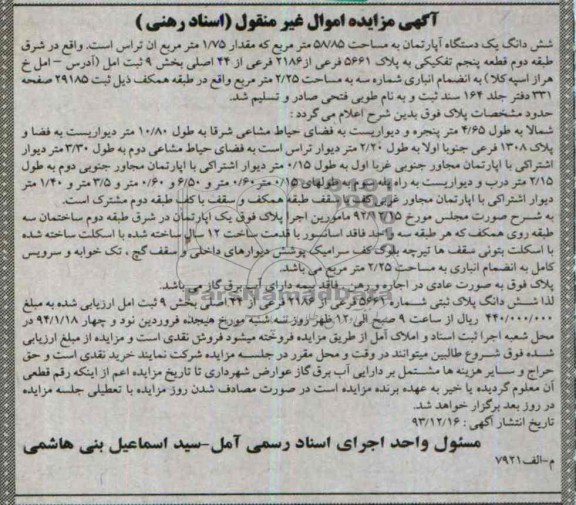 آگهی مزایده اموال غیر منقول (اسناد رهنی)
شش دانگ یک دستگاه آپارتمان به مساحت ۵۸/۸۵ متر مربع که مقدار ۱/۷۵ متر مربع ان تراس است. واقع در شرق
طبقه دوم قطعه پنجم تفکیکی به پلاک ۵۶۶۱ فرعی از ۲۱۸۶ فرعی از ۴۴ اصلی بخش ۹ ثبت امل (آدرس - امل خ
هراز اسپه کلا) به انضمام انباری شماره سه به مساحت ۲/۲۵ متر مربع واقع در طبقه همکف ذیل ثبت ۲۹۱۸۵ صفحه
۳۳۱ دفتر جلد ۱۶۴ سند ثبت و به نام طوبی فتحی صادر و تسلیم شد.
حدود مشخصات پلاک فوق بدین شرح اعلام می گردد:
شمالا به طول ۴/۶۵ متر پنجره و دیواریست به فضای حیاط مشاعی شرقا به طول ۱۰/۸۰ متر دیواریست به فضا و
پلاک ۱۳۰۸ فرعی جنوبا اولا به طول ۲/۲۰ متر دیوار تراس است به فضای حیاط مشاعی دوم به طول ۳/۳۰ متر دیوار
اشتراکی با اپارتمان مجاور جنوبی غربا اول به طول ۰/۱۵ متر دیوار اشتراکی با اپارتمان مجاور جنوبی دوم به طول
۲/۱۵ متر درب و دیواریست به راه پله سوم به طولهای ۰/۱۵ متر ۰/۶۰ متر و ۶/۵۰ و ۰/۶۰ متر و ۳/۵ متر و ۱/۴۰ متر
دیوار اشتراکی با اپارتمان مجاور غربی سقف طبقه همکف و سقف با کف طبقه دوم مشترک است.
به شرح صورت مجلس مورخ ۹۲/۱۲/۱۵ مامورین اجرا پلاک فوق یک اپارتمان در شرق طبقه دوم ساختمان سه
طبقه روی همکف که هر طبقه سه واحد فاقد اسانسور با قدمت ساخت ۱۲ سال ساخته شده با اسکلت ساخته شده
با اسکلت بتونی سقف ها تیرچه بلوک کف سرامیک پوشش دیوارهای داخلی و سقف گچ، تک خوابه و سرویس
کامل به انضمام انباری به مساحت ۲/۲۵ متر مربع می باشد.
پلاک فوق به صورت عادی در اجاره و رهن. فاقد بیمه دارای آب برق گاز می باشد.
لذا شش دانگ پلاک ثبتی شماره ۵۶۶۱ فرعی از اصلی بخش ۹ ثبت امل ارزیابی شده به مبلغ
۴۴۰/۰۰۰/۰۰۰ ریال از ساعت ۹ صبح الی ۱۲ ظهر روز سه شنبه مورخ هیجده فروردین نود و چهار ۹۴/۱/۱۸ در
محل شعبه اجرا ثبت اسناد و املاک آمل از طریق مزایده فروخته میشود فروش نقدی است و مزایده از مبلغ ارزیابی
شده فوق شروع طالبین میتوانند در وقت و محل مقرر در جلسه مزایده شرکت نمایند خرید نقدی است و حق
حراج و سایر هزینه ها مشتمل بر دارایی آب برق گاز عوارض شهرداری تا تاریخ مزایده اعم از اینکه رقم قطعی
آن معلوم گردیده یا خیر به عهده برنده مزایده است در صورت مصادف شدن روز مزایده با تعطیلی جلسه مزایده
در روز بعد برگزار خواهد شد.
تاریخ انتشار آگهی: ۹۳/۱۲/۱۶
مسئول واحد اجرای اسناد رسمی آمل-سید اسماعیل بنی هاشمی
م-الف ۷۹۲۱